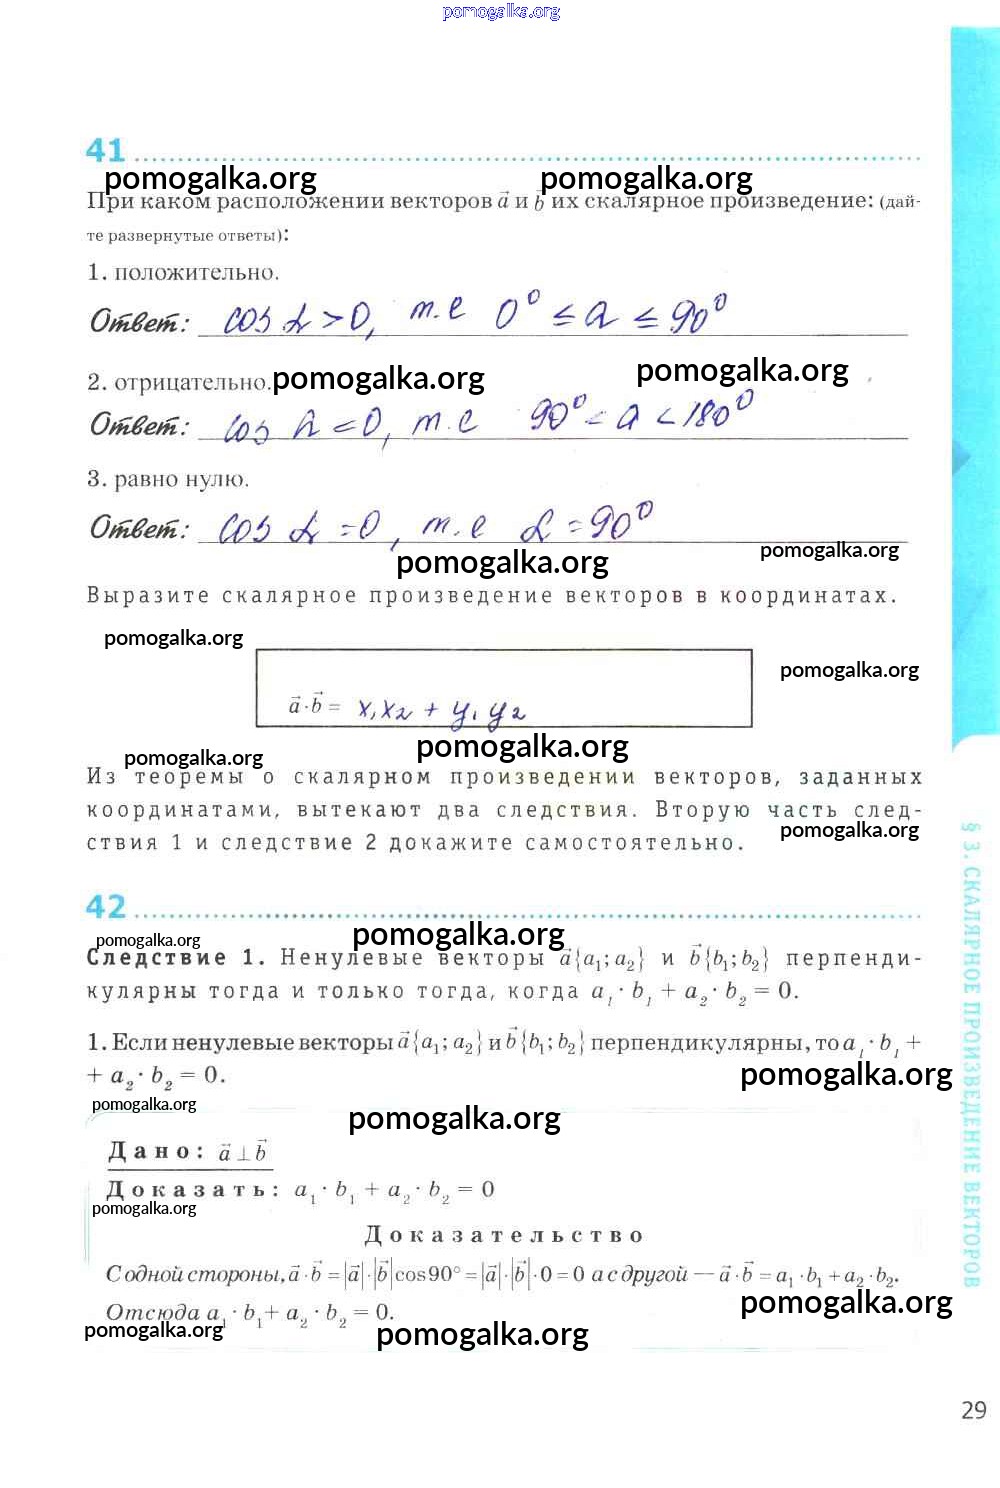 pomogalka.org
41
pomogalka.org pomogalka.org
При каком расположении векторов a⃗ и b⃗ их скалярное произведение: (дай-
те развернутые ответы):
1. положительно.
Ответ: cos α > 0, т.е 0° ≤ α ≤ 90°
2. отрицательно. pomogalka.org pomogalka.org
Ответ: cos α < 0, т.е 90° < α < 180°
3. равно нулю.
Ответ: cos α = 0, т.е α = 90°
pomogalka.org pomogalka.org
Выразите скалярное произведение векторов в координатах.
pomogalka.org
pomogalka.org
a⃗·b⃗ = x₁x₂ + y₁y₂
pomogalka.org pomogalka.org
Из теоремы о скалярном произведении векторов, заданных
координатами, вытекают два следствия. Вторую часть след-
pomogalka.org
ствия 1 и следствие 2 докажите самостоятельно.
42
pomogalka.org pomogalka.org
Следствие 1. Ненулевые векторы a⃗{a₁; a₂} и b⃗{b₁; b₂} перпенди-
кулярны тогда и только тогда, когда a₁ · b₁ + a₂ · b₂ = 0.
1. Если ненулевые векторы a⃗{a₁; a₂} и b⃗{b₁; b₂} перпендикулярны, то a₁ · b₁ +
+ a₂ · b₂ = 0.
pomogalka.org
pomogalka.org pomogalka.org
Дано: a⃗ ⊥ b⃗
Доказать: a₁ · b₁ + a₂ · b₂ = 0
pomogalka.org
Доказательство
С одной стороны, a⃗ · b⃗ = |a⃗| · |b⃗| cos 90° = |a⃗| · |b⃗| · 0 = 0 а с другой — a⃗ · b⃗ = a₁ · b₁ + a₂ · b₂.
pomogalka.org
Отсюда a₁ · b₁ + a₂ · b₂ = 0.
pomogalka.org pomogalka.org
§ 3. СКАЛЯРНОЕ ПРОИЗВЕДЕНИЕ ВЕКТОРОВ
29